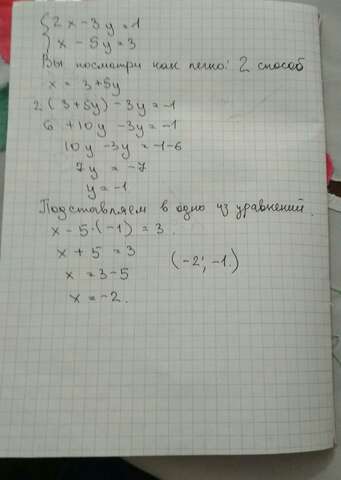 {2x-3y=1
x-5y=3
Вы посмотри как легко! 2 способ
x = 3+5y
2(3+5y)-3y=-1
6 +10y -3y=-1
10y -3y=-1-6
7y = -7
y=-1
Подставляем в одно из уравнений.
x-5·(-1)=3.
x+5=3
(-2; -1.)
x =3-5
x=-2.